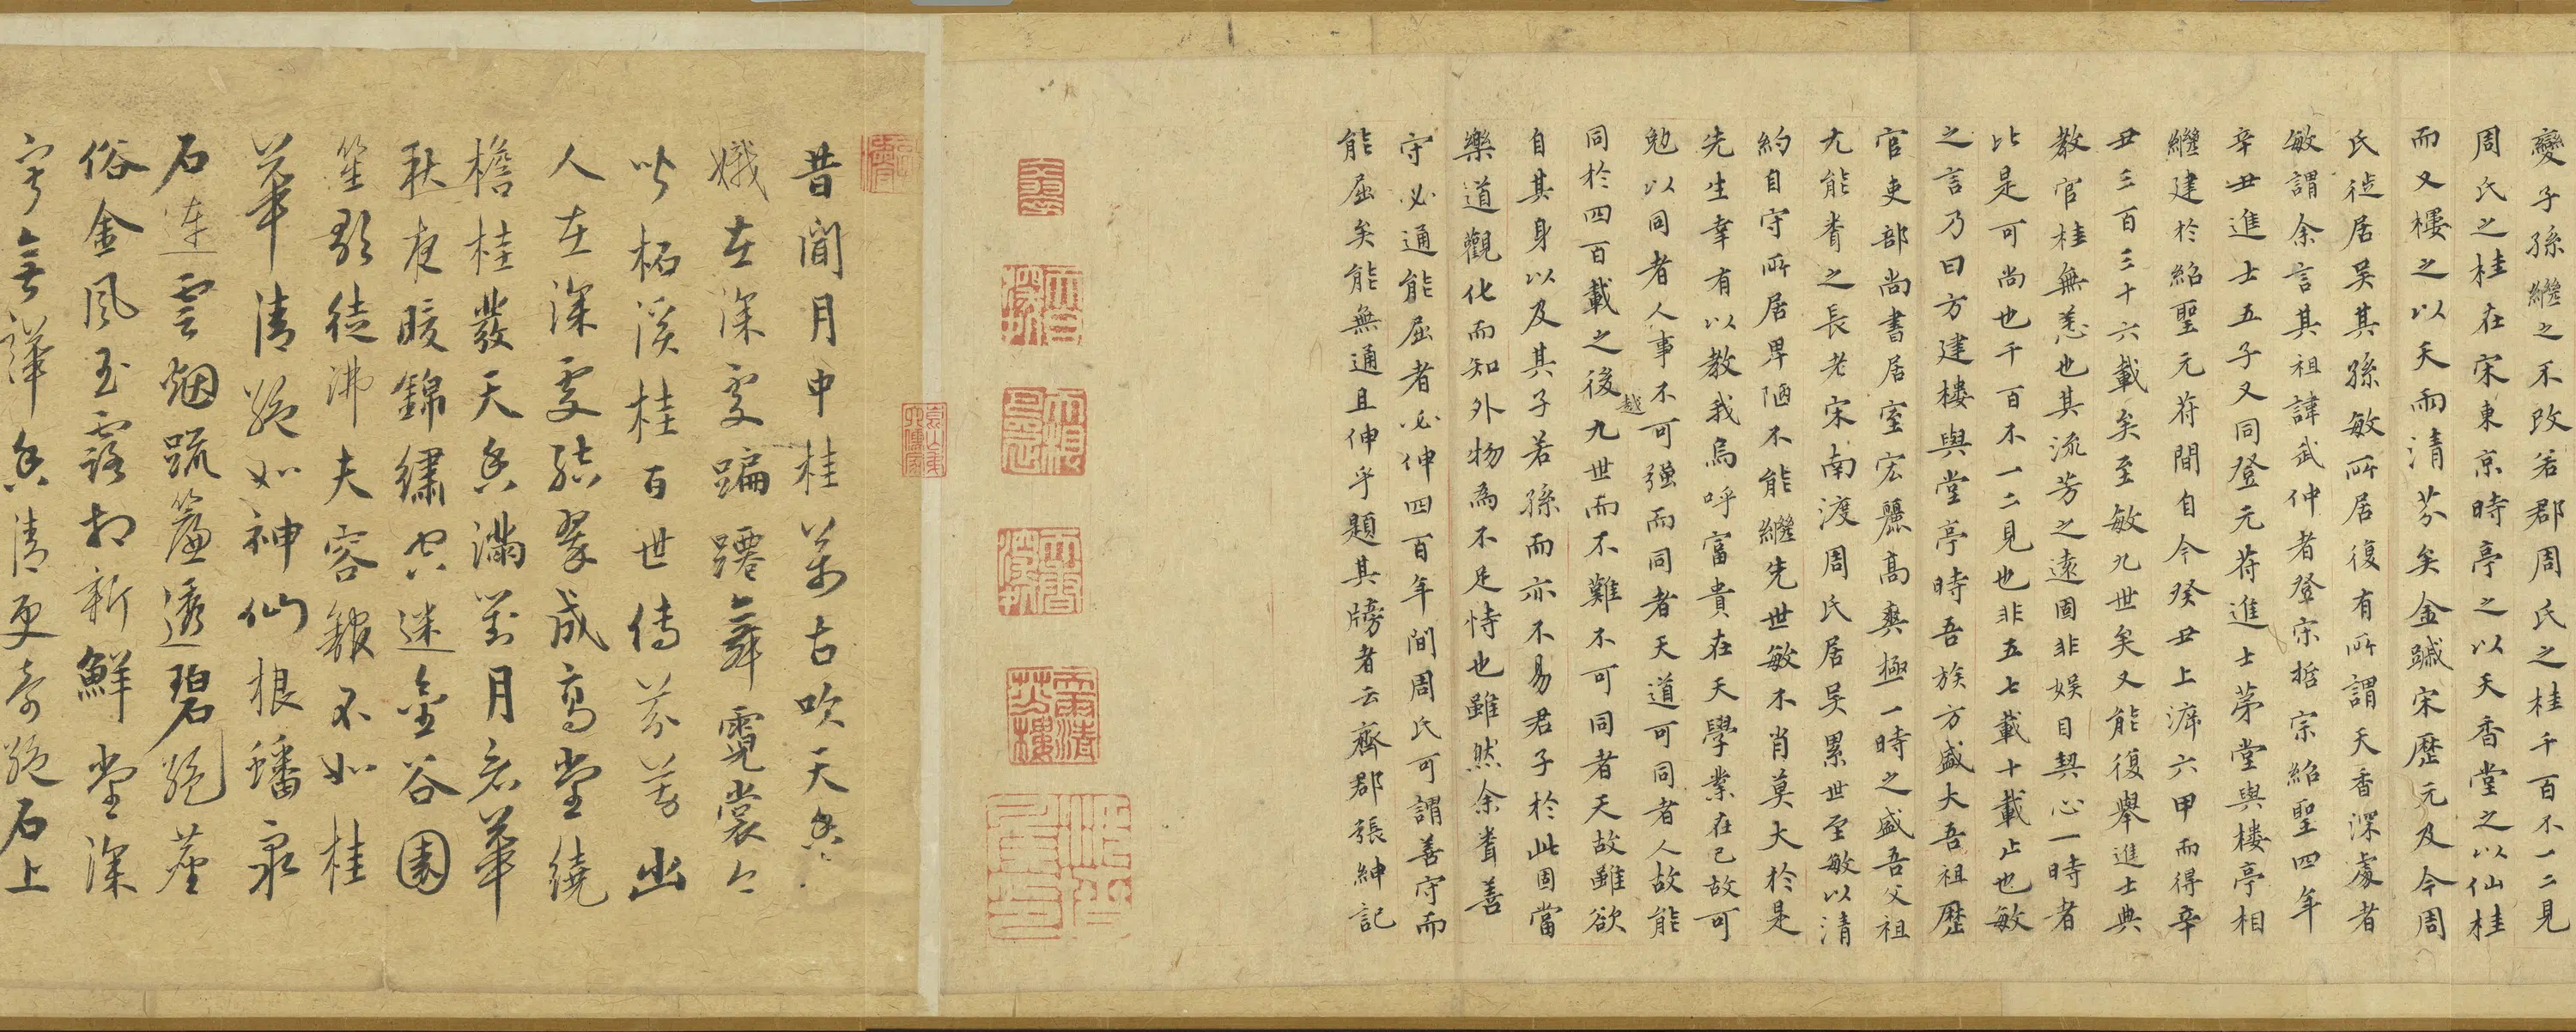 變子孫繼之不改若郡周氏之桂千百不一二見
周氏之桂在宋東京時亭之以天香堂之以仙桂
而又樓之以天雨清芬矣金踰宋歷元及今周
氏徙居吴其孫敏所居復有所謂天香深處者
敏謂余言其祖諱武仲者登宋哲宗紹聖四年
辛丑進士五子又同登元符進士第堂與樓亭相
繼建於紹聖元符間自今癸丑上泝六甲而得辛
丑三百三十六載矣至敏九世矣又能復舉進士典
教官桂無恙也其流芳之遠固非娱目契心一時者
比是可尚也千百不一二見也非五七載十載止也敏
之言乃曰方建樓與堂亭時吾族方盛大吾祖歷
官吏部尚書居室宏麗高爽極一時之盛吾父祖
尤能耆之長老宋南渡周氏居吴累世至敏以清
約自守所居卑陋不能繼先世敏不肖莫大於是
先生幸有以教我烏呼富貴在天學業在己故可
勉以同者人事不可强而同者天道可同者人故能
同於四百載之後越九世而不難不可同者天故雖欲
自其身以及其子若孫而亦不易君子於此固當
樂道觀化而知外物為不足恃也雖然余耆善
守必通能屈者必伸四百年間周氏可謂善守而
能屈矣能無通且伸乎題其牓者云齊郡張紳記
昔聞月中桂萬古吹天香
娥在深處蹁躚舞霓裳
以柘溪桂百世傳芬芳幽
人在深處結翠成高堂繞
檐桂叢天香滿對月若華
秋夜暖錦繡空迷金谷園
笙歌徒沸夫容館不如桂
華清絶如神仙根蟠泉
石連雲烟疏簾透碧絶塵
俗金風玉露相新鮮堂深
無譁香清更奇絶石上